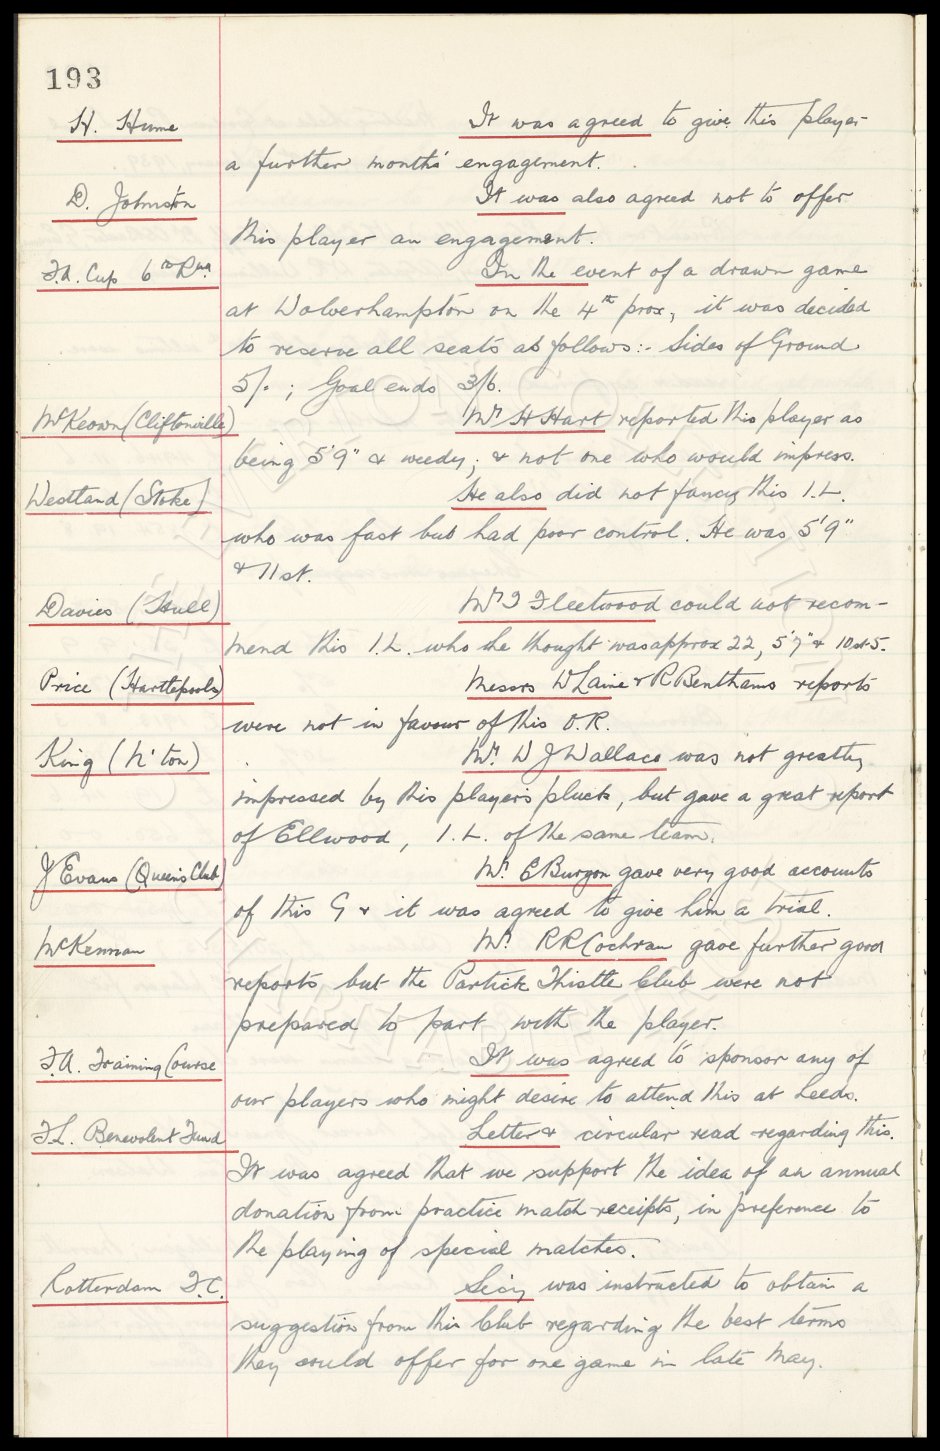 193
H. Hume It was agreed to give this player
a further months' engagement.
D. Johnston It was also agreed not to offer
this player an engagement.
F.A. Cup 6th Rnd It In the event of a drawn game
at Wolverhampton on the 4th prox, it was decided
to reserve all seats as follows:- Sides of Ground
5/- ; Goal ends 3/6.
McKeown (Cliftonville) Mr H Hart reported this player as
being 5'9" & weedy; & not one who would impress.
Westland (Stoke) He also did not fancy this I.L.
who was fast but had poor control. He was 5'9"
& 11 st.
Davies (Hull) Mr T Fleetwood could not recom-
mend this I.L. who he thought was approx 22, 5'7" & 10st 5.
Price (Hartlepools) Messrs W Laine & R Benthams reports
were not in favour of this O.R.
King (N'ton) Mr. W J Wallace was not greatly
impressed by this player's pluck, but gave a great report
of Ellwood, I.L. of the same team.
J Evans (Queen's Club) Mr. E Burgon gave very good accounts
of this G & it was agreed to give him a trial.
McKennan Mr. R R Cochran gave further good
reports, but the Partick Thistle Club were not
prepared to part with the player.
F.A. Training Course It was agreed to sponsor any of
our players who might desire to attend this at Leeds.
F.L. Benevolent Fund Letter & circular read regarding this.
It was agreed that we support the idea of an annual
donation from practice match receipts, in preference to
the playing of special matches.
Rotterdam F.C. Secy was instructed to obtain a
suggestion from this Club regarding the best terms
they could offer for one game in late May.